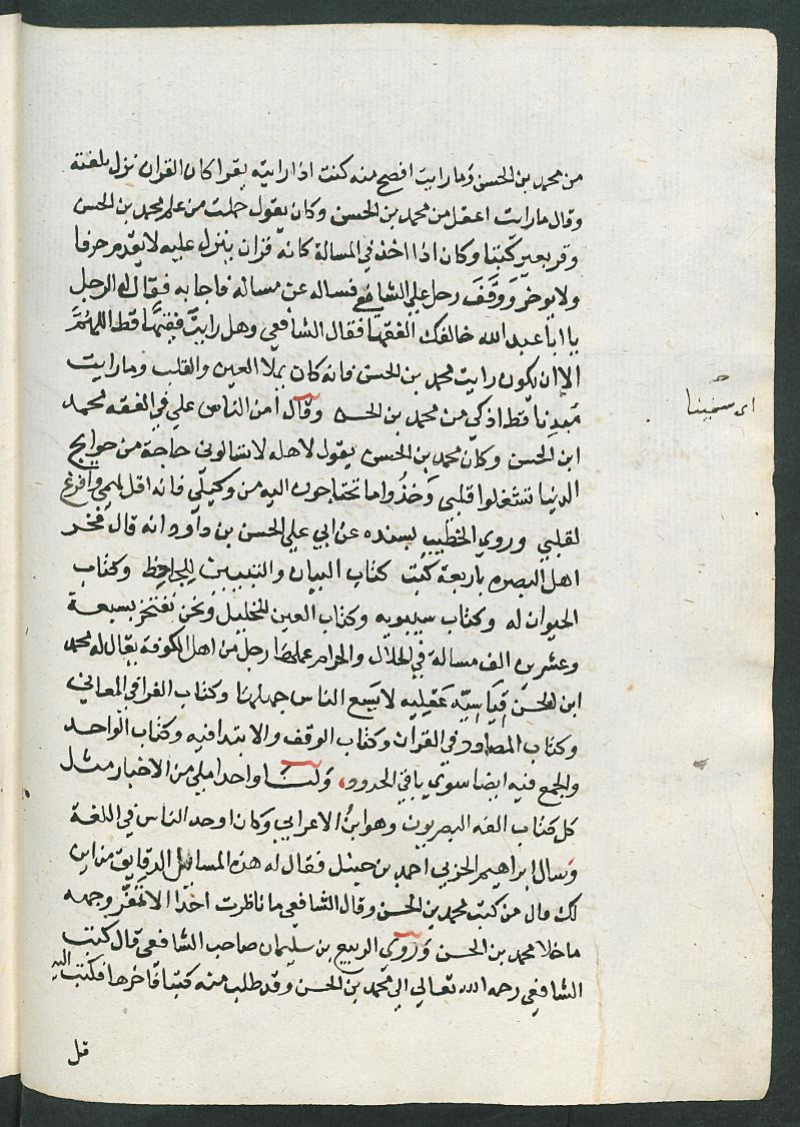 من محمد بن الحسن وما رايت افصح منه كنت اذا رايته يقرا كان القران نزل بلغته
وقال ما رايت اعقل من محمد بن الحسن وكان يقول حملت من علم محمد بن الحسن
وقر بعير كتبا وكان اذا اخذ في المسالة كانه قران ينزل عليه لا يقدم حرفا
ولا يوخر ووقف رجل علي الشافعي فساله عن مسالة فاجابه فقال له الرجل
يا ابا عبد الله خالفك الفقها فقال الشافعي وهل رايت فقيها قط اللهم
الا ان تكون رايت محمد بن الحسن فانه كان يملا العين والقلب وما رايت
مبدنا قط اذكي من محمد بن الحسن وقال امن الناس علي في الفقه محمد
ابن الحسن وكان محمد بن الحسن يقول لاهله لا تسالوني حاجة من حوايج
الدنيا تشغلوا قلبي وخذوا ما تحتاجون اليه من وكيلي فانه اقل لهمي وافرغ
لقلبي وروي الخطيب بسنده عن ابي علي الحسن بن داود انه قال فخر
اهل البصره باربعة كتب كتاب البيان والتبيين للجاحظ وكتاب
الحيوان له وكتاب سيبويه وكتاب العين للخليل ونحن نفتخر بسبعة
وعشرين الف مسالة في الحلال والحرام عملها رجل من اهل الكوفة يقال له محمد
ابن الحسن قياسيه عقليه لا يسع الناس جهلها وكتاب الفرا في المعاني
وكتاب المصادر في القران وكتاب الوقف والابتدا فيه وكتاب الواحد
والجمع فيه ايضا سوي باقي الحدود ولنا واحد املي من الاخبار مثل
كل كتاب الفه البصريون وهو ابن الاعرابي وكان اوحد الناس في اللغة
وسال ابراهيم الحربي احمد بن حنبل فقال له هذه المسايل الدقايق من اين
لك قال من كتب محمد بن الحسن وقال الشافعي ما ناظرت احدا الا تمعر وجهه
ما خلا محمد بن الحسن وروي الربيع بن سليمان صاحب الشافعي قال كتب
الشافعي رحمه الله تعالي الي محمد بن الحسن وقد طلب منه كتبا فاخرها فكتب اليه
قل
اي سمينا